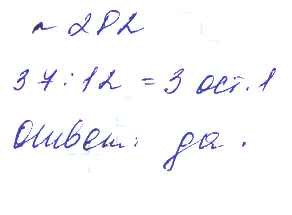 № 282
37 : 12 = 3 ост. 1
Ответ: да.